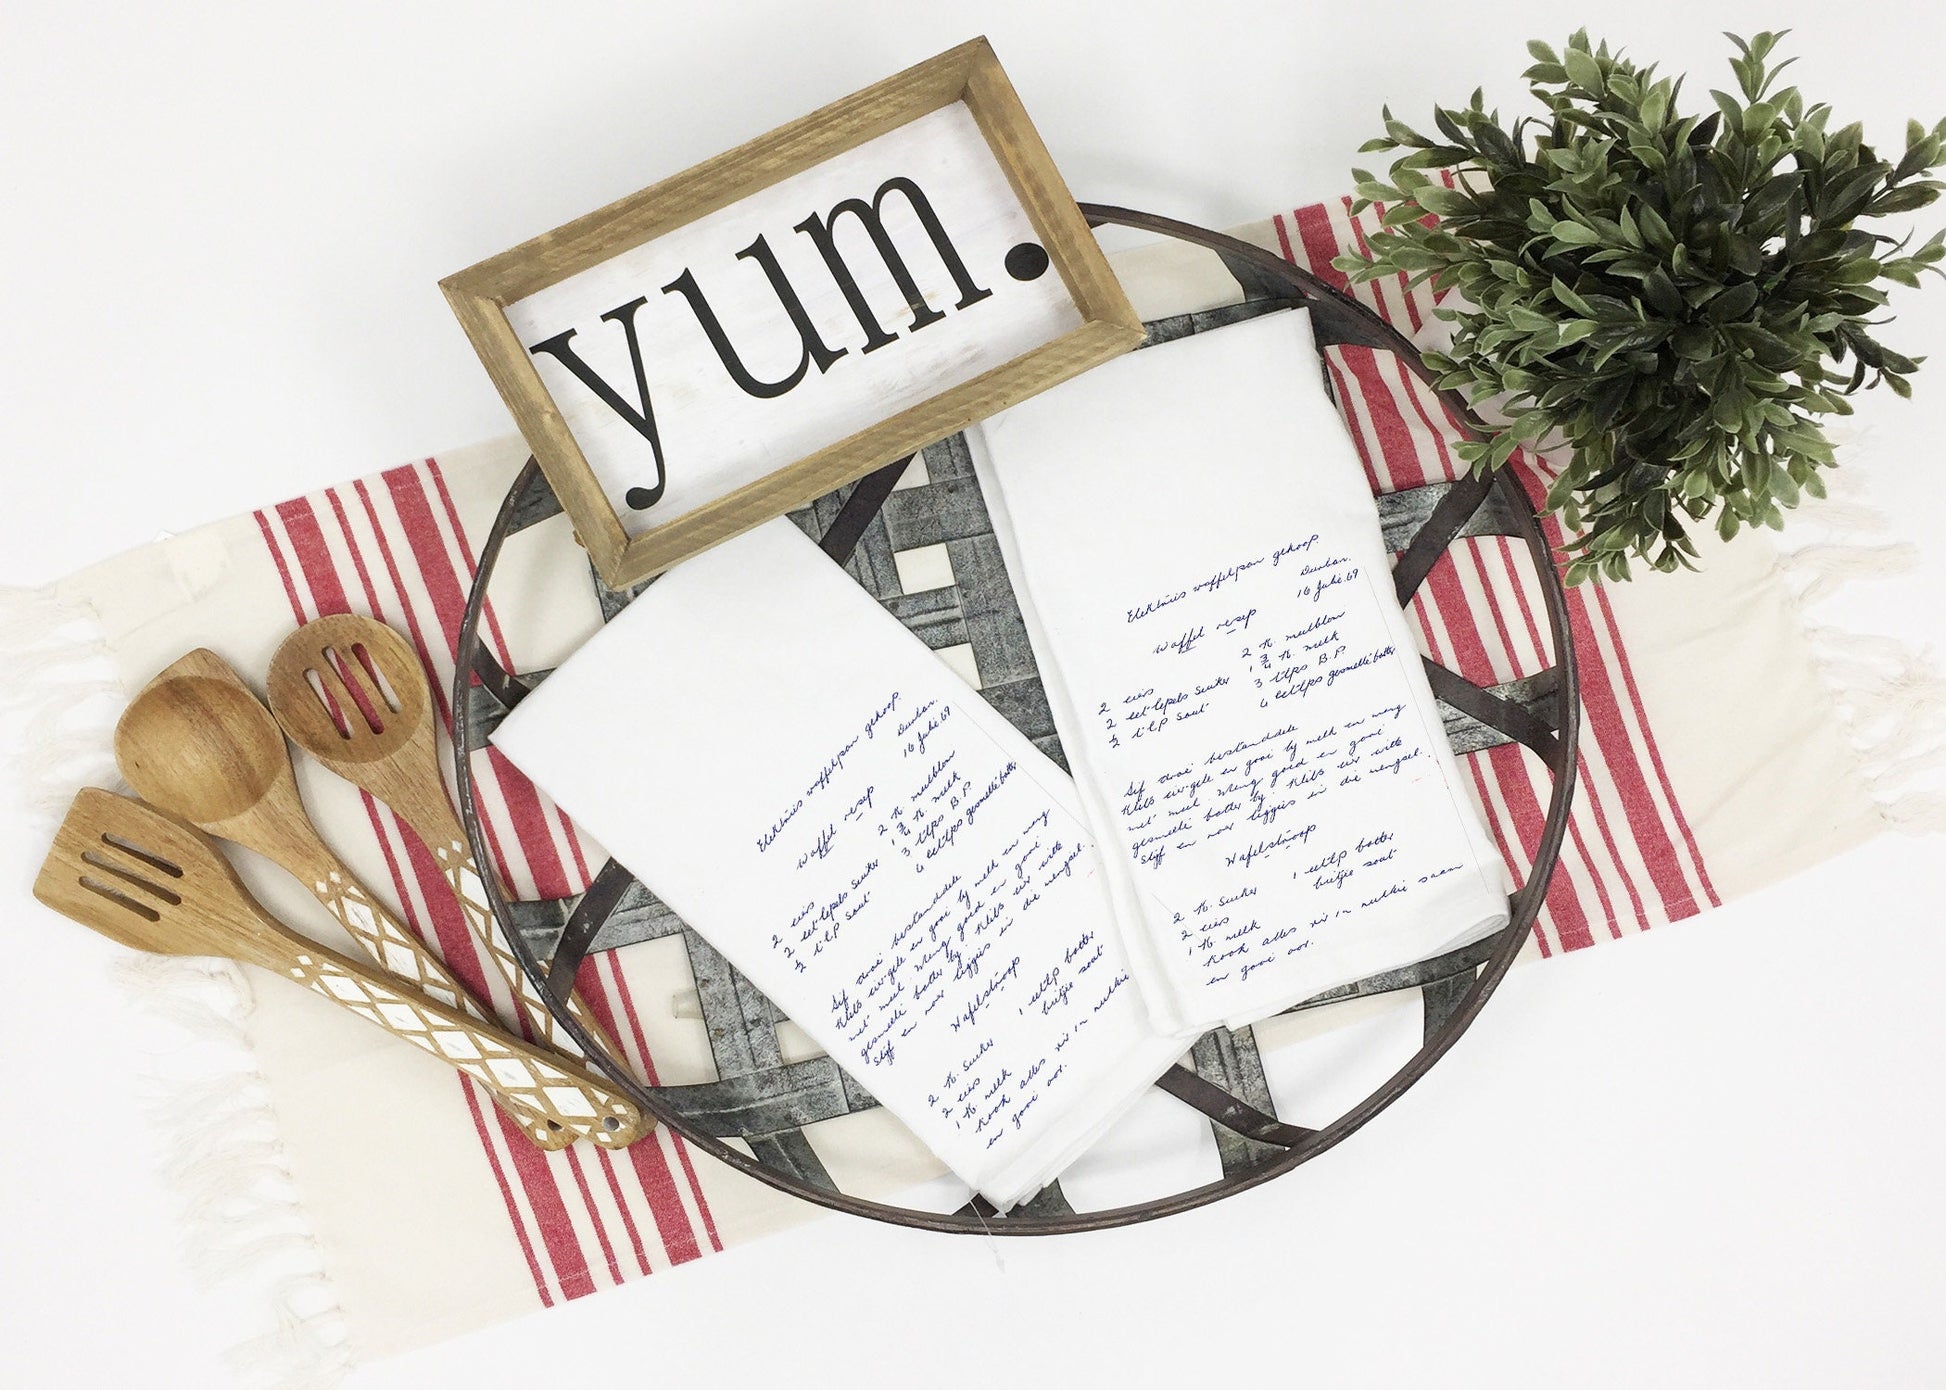 yum.
Elektriese waffelpan gekoop.
Durban.
16 Julie. 69
Waffel resep
2 K. meelblom
2 eiers 1 3/4 K. melk
2 eet-lepels suiker 3 t'lps B.P.
1/2 t'lp sout 4 eetlps gesmelte botter
Sif droë bestanddele
Klits eiergele en gooi by melk en meng
met meel. Meng goed en gooi
gesmelte botter by. Klits eier witte
styf en vou liggies in die mengsel.
Wafelstroop
2 K. suiker 1 eetlp botter
2 eiers bietjie sout
1 K. melk
Kook alles vir 10 minute saam
en gooi oor.
Elektriese waffelpan gekoop.
Durban.
16 Julie 69
Waffel resep
2 K. meelblom
2 eiers 1 3/4 K. melk
2 eet-lepels suiker 3 t'lps B.P.
1/2 t'lp sout 4 eetlps gesmelte botter
Sif droë bestanddele
Klits eiergele en gooi by melk en meng
met meel. Meng goed en gooi
gesmelte botter by. Klits eier witte
styf en vou liggies in die mengsel.
Wafelstroop
2 K. suiker 1 eetlp botter
2 eiers bietjie sout
1 K. melk
Kook alles vir 10 minute
en gooi oor.